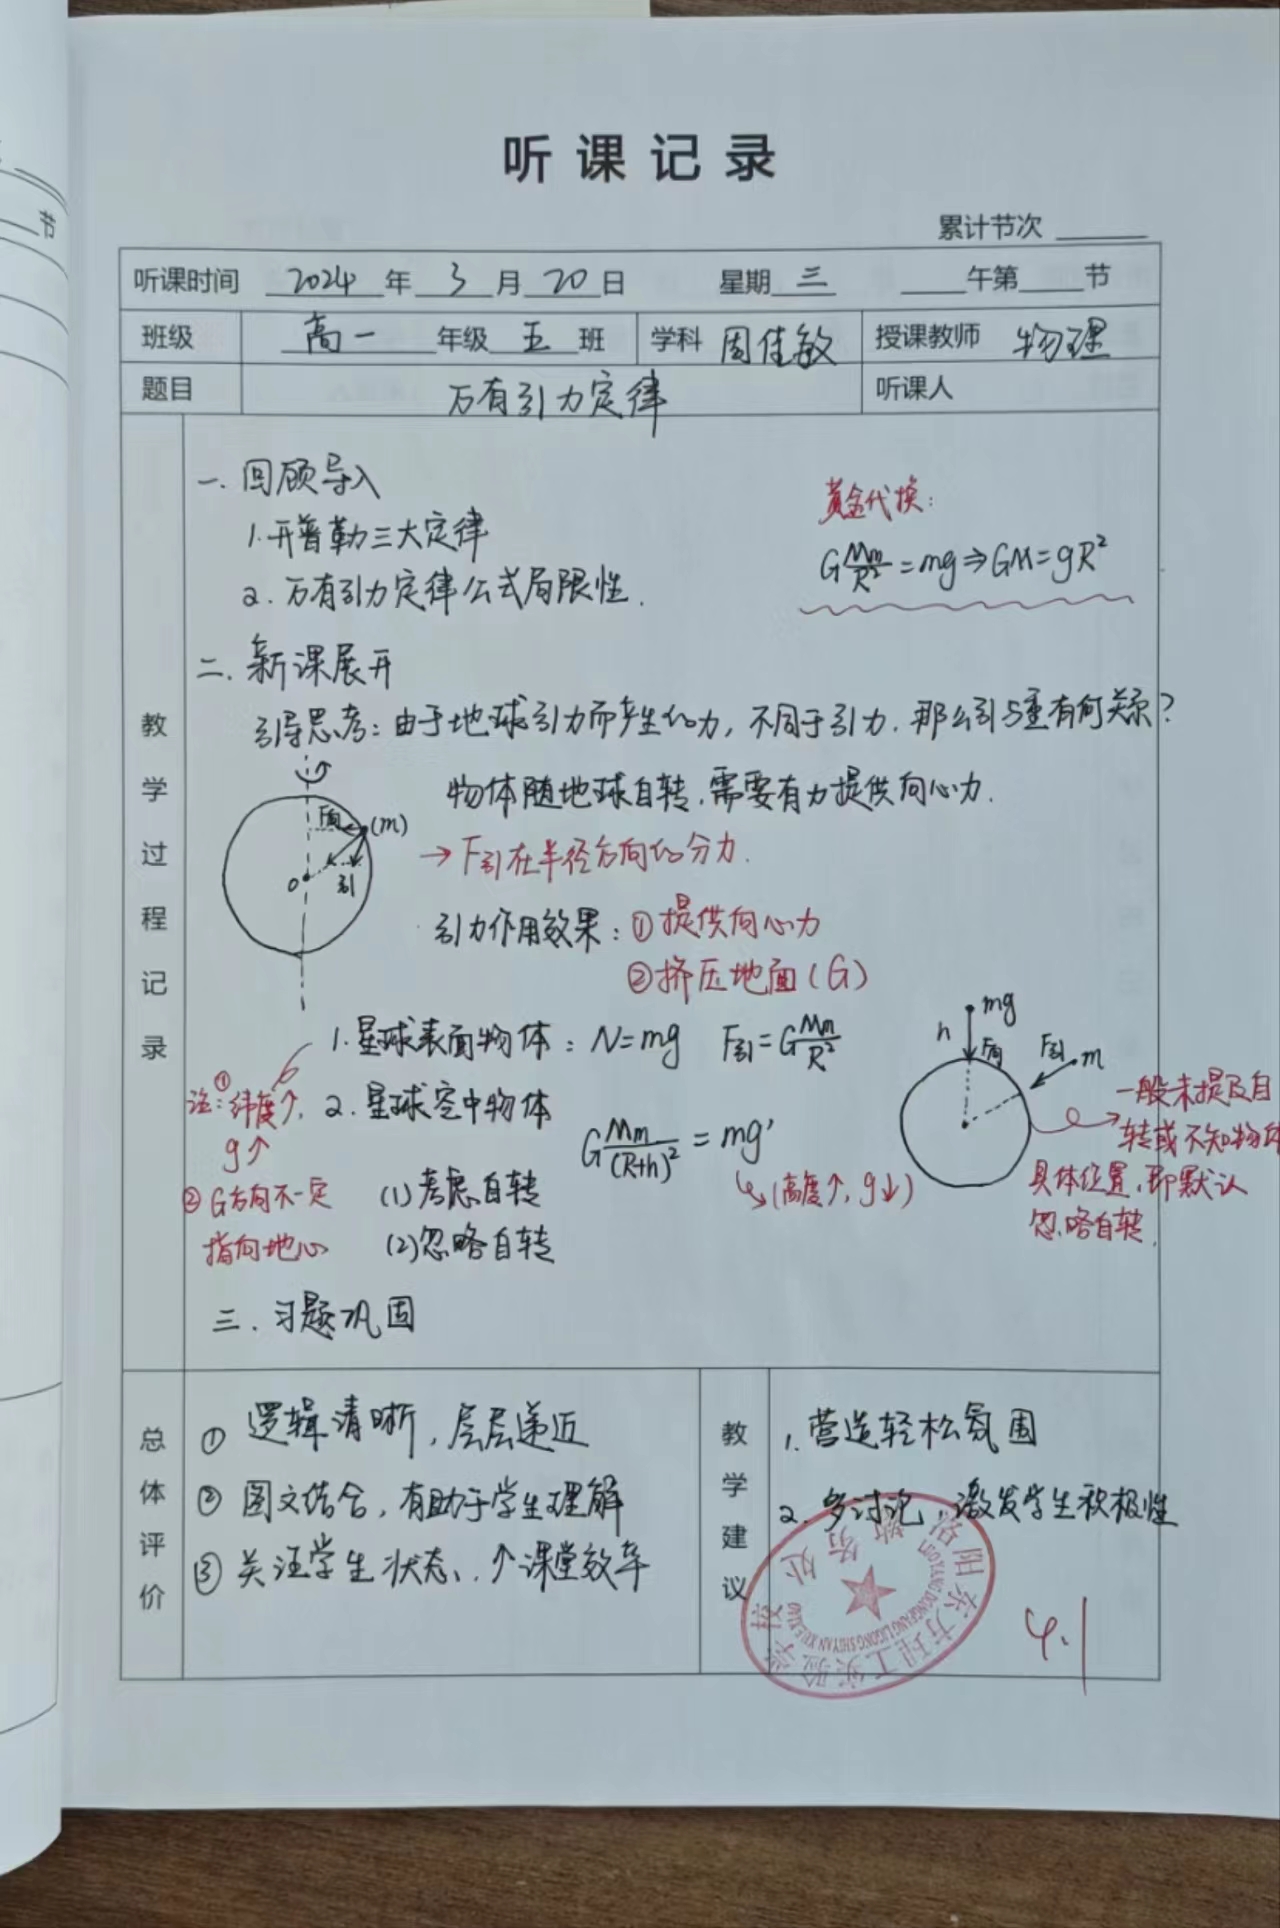 听课记录
累计节次
听课时间 2024 年 3 月 20 日 星期 三 午第 节
班级 高一 年级 五 班 学科 周佳敏 授课教师 物理
题目 万有引力定律 听课人
教学过程记录
一. 回顾导入
1.开普勒三大定律
2. 万有引力定律公式局限性.
黄金代换:
G Mm/R² = mg ⇒ GM = gR²
二. 新课展开
引导思考: 由于地球引力而产生的力, 不同于引力. 那么引与重有何关系?
物体随地球自转, 需要有力提供向心力.
F向 (m)
O 引
→ F引在半径方向的分力.
引力作用效果: ①提供向心力
②挤压地面(G)
1.星球表面物体: N=mg F引=G Mm/R²
注: ①纬度↑, g↑
②G方向不一定
指向地心
2.星球空中物体
G Mm/(R+h)² = mg'
(高度↑, g↓)
(1)考虑自转
(2)忽略自转
mg
h F向 F引 m
一般未提及自
转或不知物体
具体位置, 即默认
忽略自转.
三. 习题巩固
总体评价
① 逻辑清晰, 层层递近
② 图文结合, 有助于学生理解
③ 关注学生状态, ↑课堂效率
教学建议
1. 营造轻松氛围
2. 多讨论, 激发学生积极性
洛阳东方理工实验学校
LUOYANG DONGFANG LIGONG SHIYAN XUEXIAO
教务处
4.1